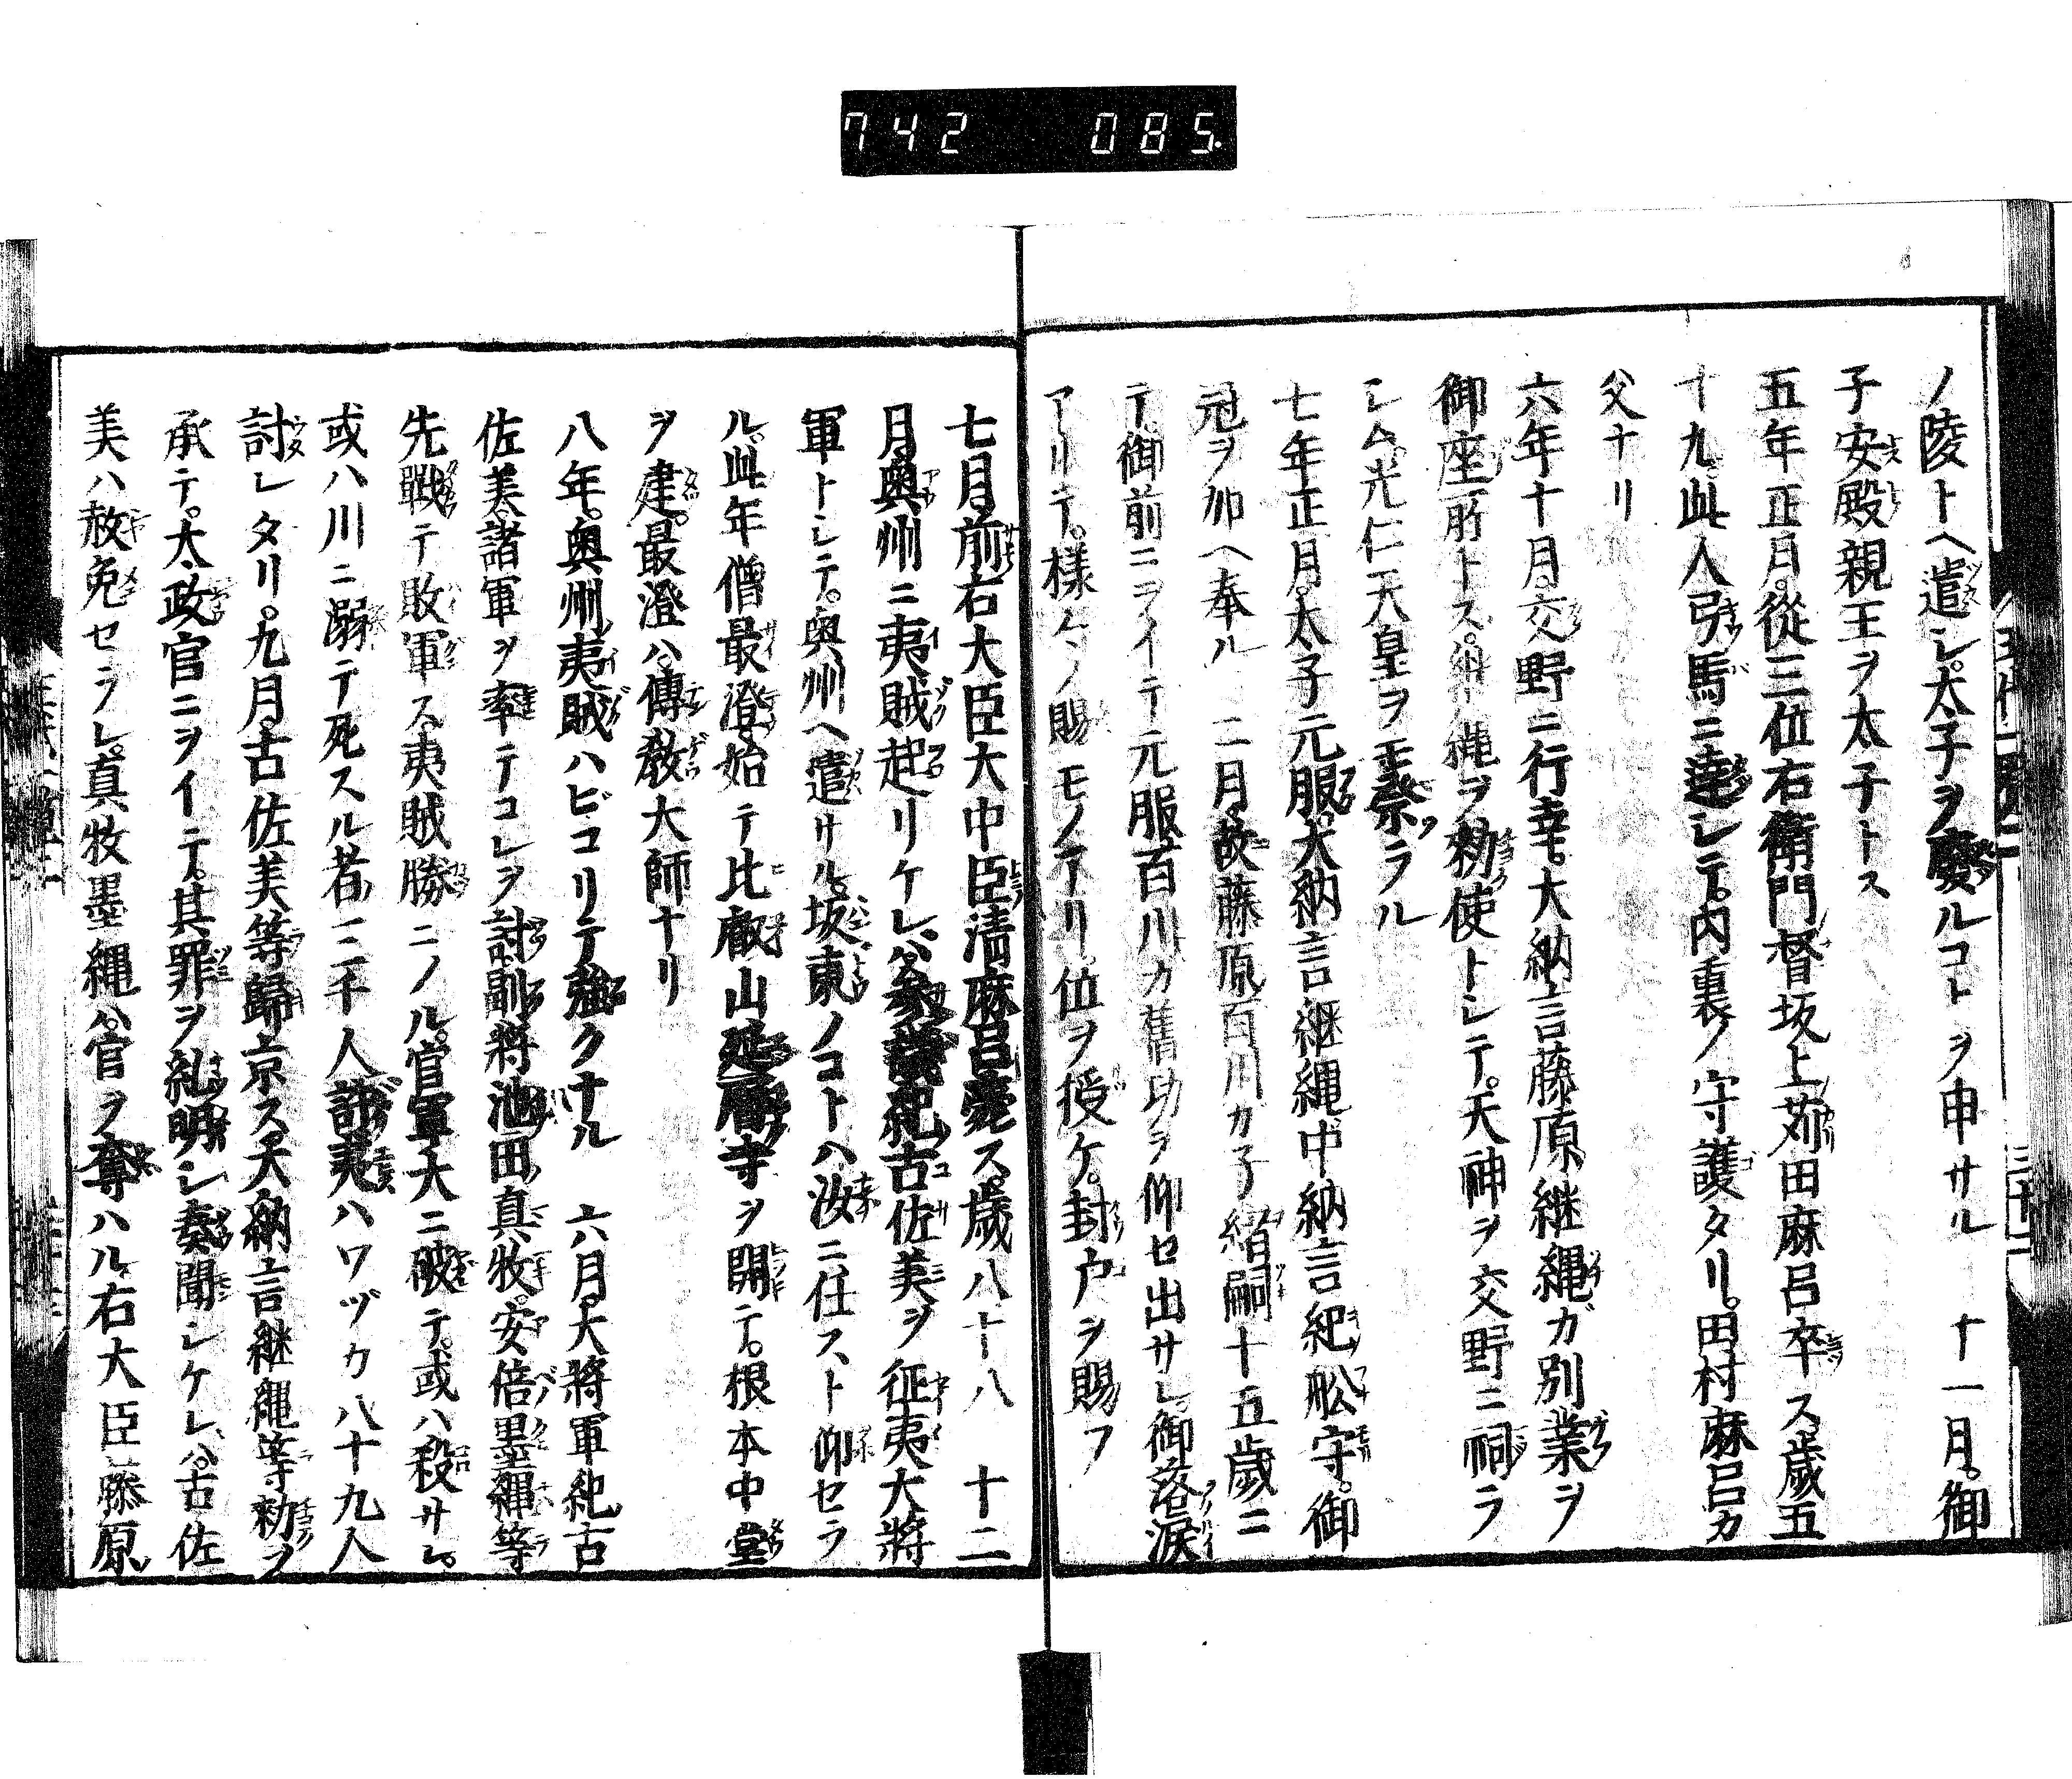 742 085.
ノ陵トヘ遣シ。太子ヲ廢ルコトヲ申サル 十一月。御
子安殿親王ヲ太子トス
五年正月。從三位右衛門督坂上苅田麻呂卒ス。歳五
十九。此人弓馬ニ達シテ。内裏ノ守護タリ。田村麻呂カ
父ナリ
六年十月。交野ニ行幸。大納言藤原継縄ガ別業ヲ
御座所トス。継縄ヲ勅使トシテ。天神ヲ交野ニ祠ラ
シム。光仁天皇ヲモ祭ラル
七年正月。太子元服。大納言継縄中納言紀舩守。御
冠ヲ加ヘ奉ル 二月。故藤原百川カ子緒嗣十五歳ニ
テ。御前ニヲイテ元服。百川カ舊功ヲ仰セ出サレ。御落涙
アリテ。様々ノ賜モノアリ。位ヲ授ケ。封戸ヲ賜フ
七月。前右大臣大中臣清麻呂薨ス。歳八十八 十二
月。奥州ニ夷賊起リケレバ。参議紀古佐美ヲ征夷大將
軍トシテ。奥州ヘ遣サル。坂東ノコトハ汝ニ任ストト仰セラ
ル。此年僧最澄始テ比叡山延暦寺ヲ開テ。根本中堂
ヲ建。最澄ハ。傳教大師ナリ
八年。奥州夷賊ハビコリテ強クナル 六月。大將軍紀古
佐美。諸軍ヲ率テコレヲ討。副將池田真牧。安倍墨縄等
先戰テ敗軍ス。夷賊勝ニノル。官軍大ニ破テ。或ハ殺サレ。
或ハ川ニ溺テ死スル者。二千人。討夷ハワヅカ八十九人
討レタリ。九月。古佐美等歸京ス。大納言継縄等勅ヲ
承テ。太政官ニヲイテ。其罪ヲ糺明シ奏聞シケレハ。古佐
美ハ赦免セラレ。真牧墨縄ハ。官ヲ奪ハル。右大臣藤原